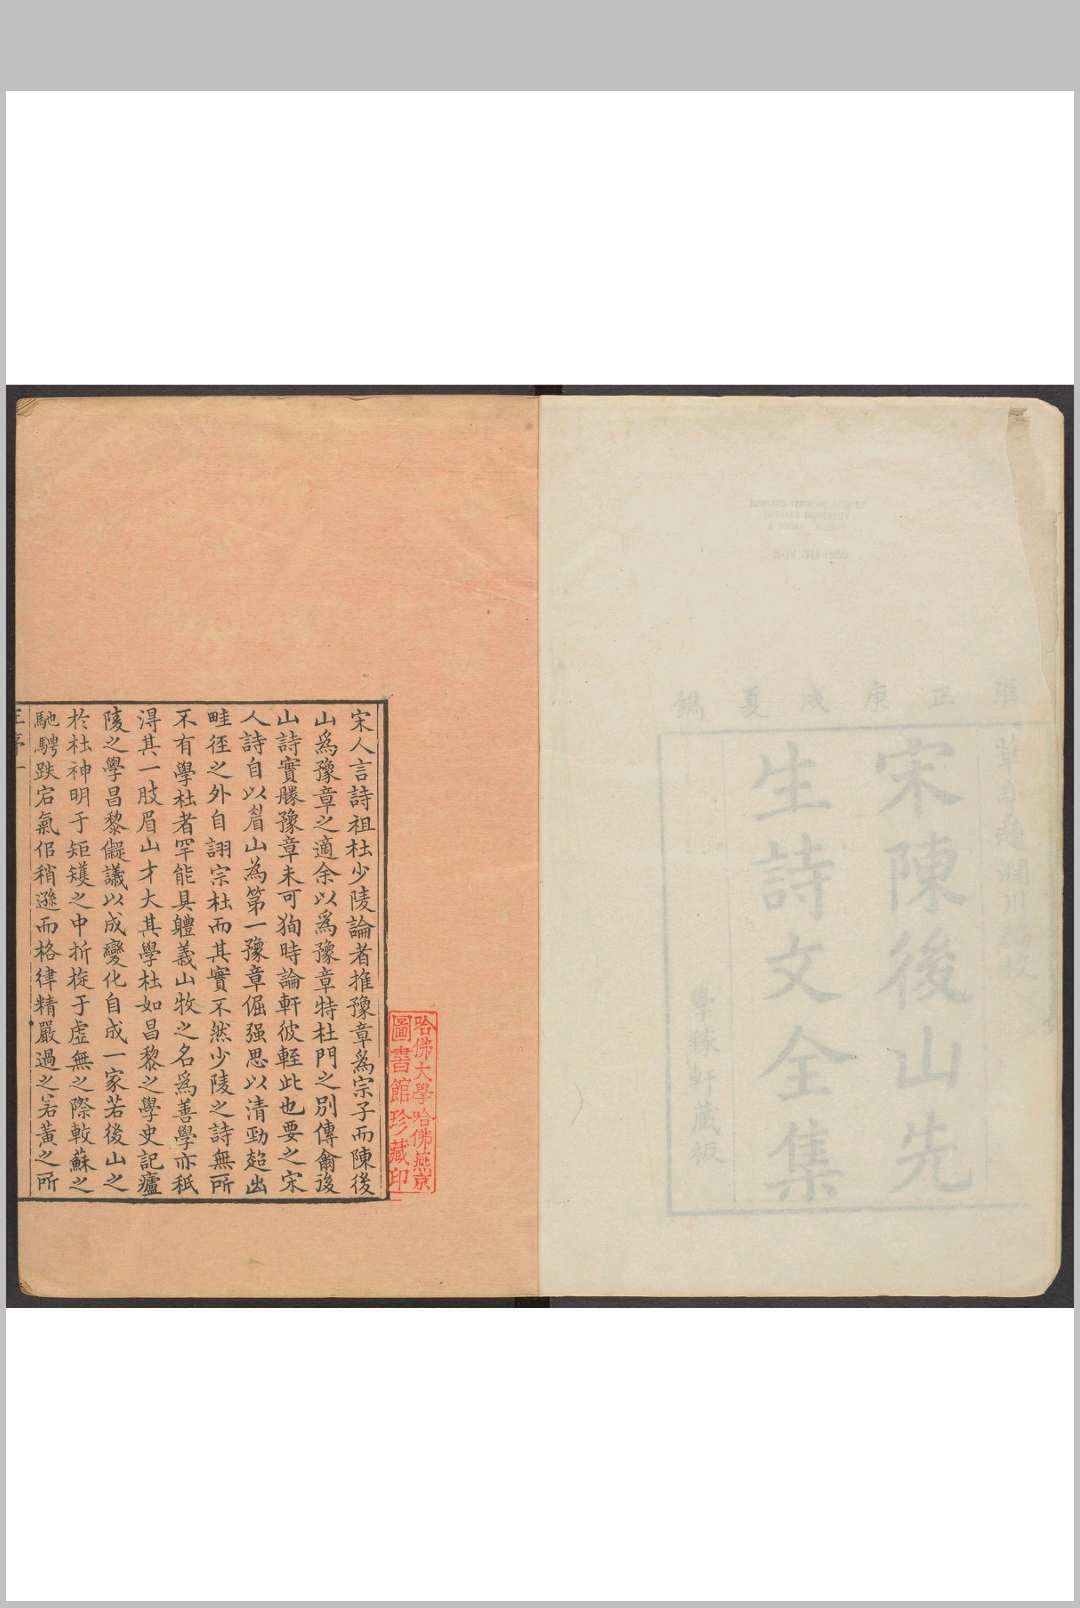 雍正庚戌夏鐫
宋陳後山先
生詩文全集
藏板
宋人言詩祖杜少陵論者推豫章爲宗子而陳後
山爲豫章之適余以爲豫章特杜門之別傳爾後
山詩實勝豫章未可狥時論軒彼輊此也要之宋
人詩自以眉山為第一豫章倔强思以清勁超出
畦徑之外自詡宗杜而其實不然少陵之詩無所
不有學杜者罕能具軆義山牧之名爲善學亦秖
淂其一肢眉山才大其學杜如昌黎之學史記廬
陵之學昌黎儗議以成變化自成一家若後山之
於杜神明于矩矱之中折旋于虛無之際較蘇之
馳騁跌宕氣佀稍遜而格律精嚴過之若黃之所
王序 一
哈佛大學哈佛燕京
圖書館珍藏印